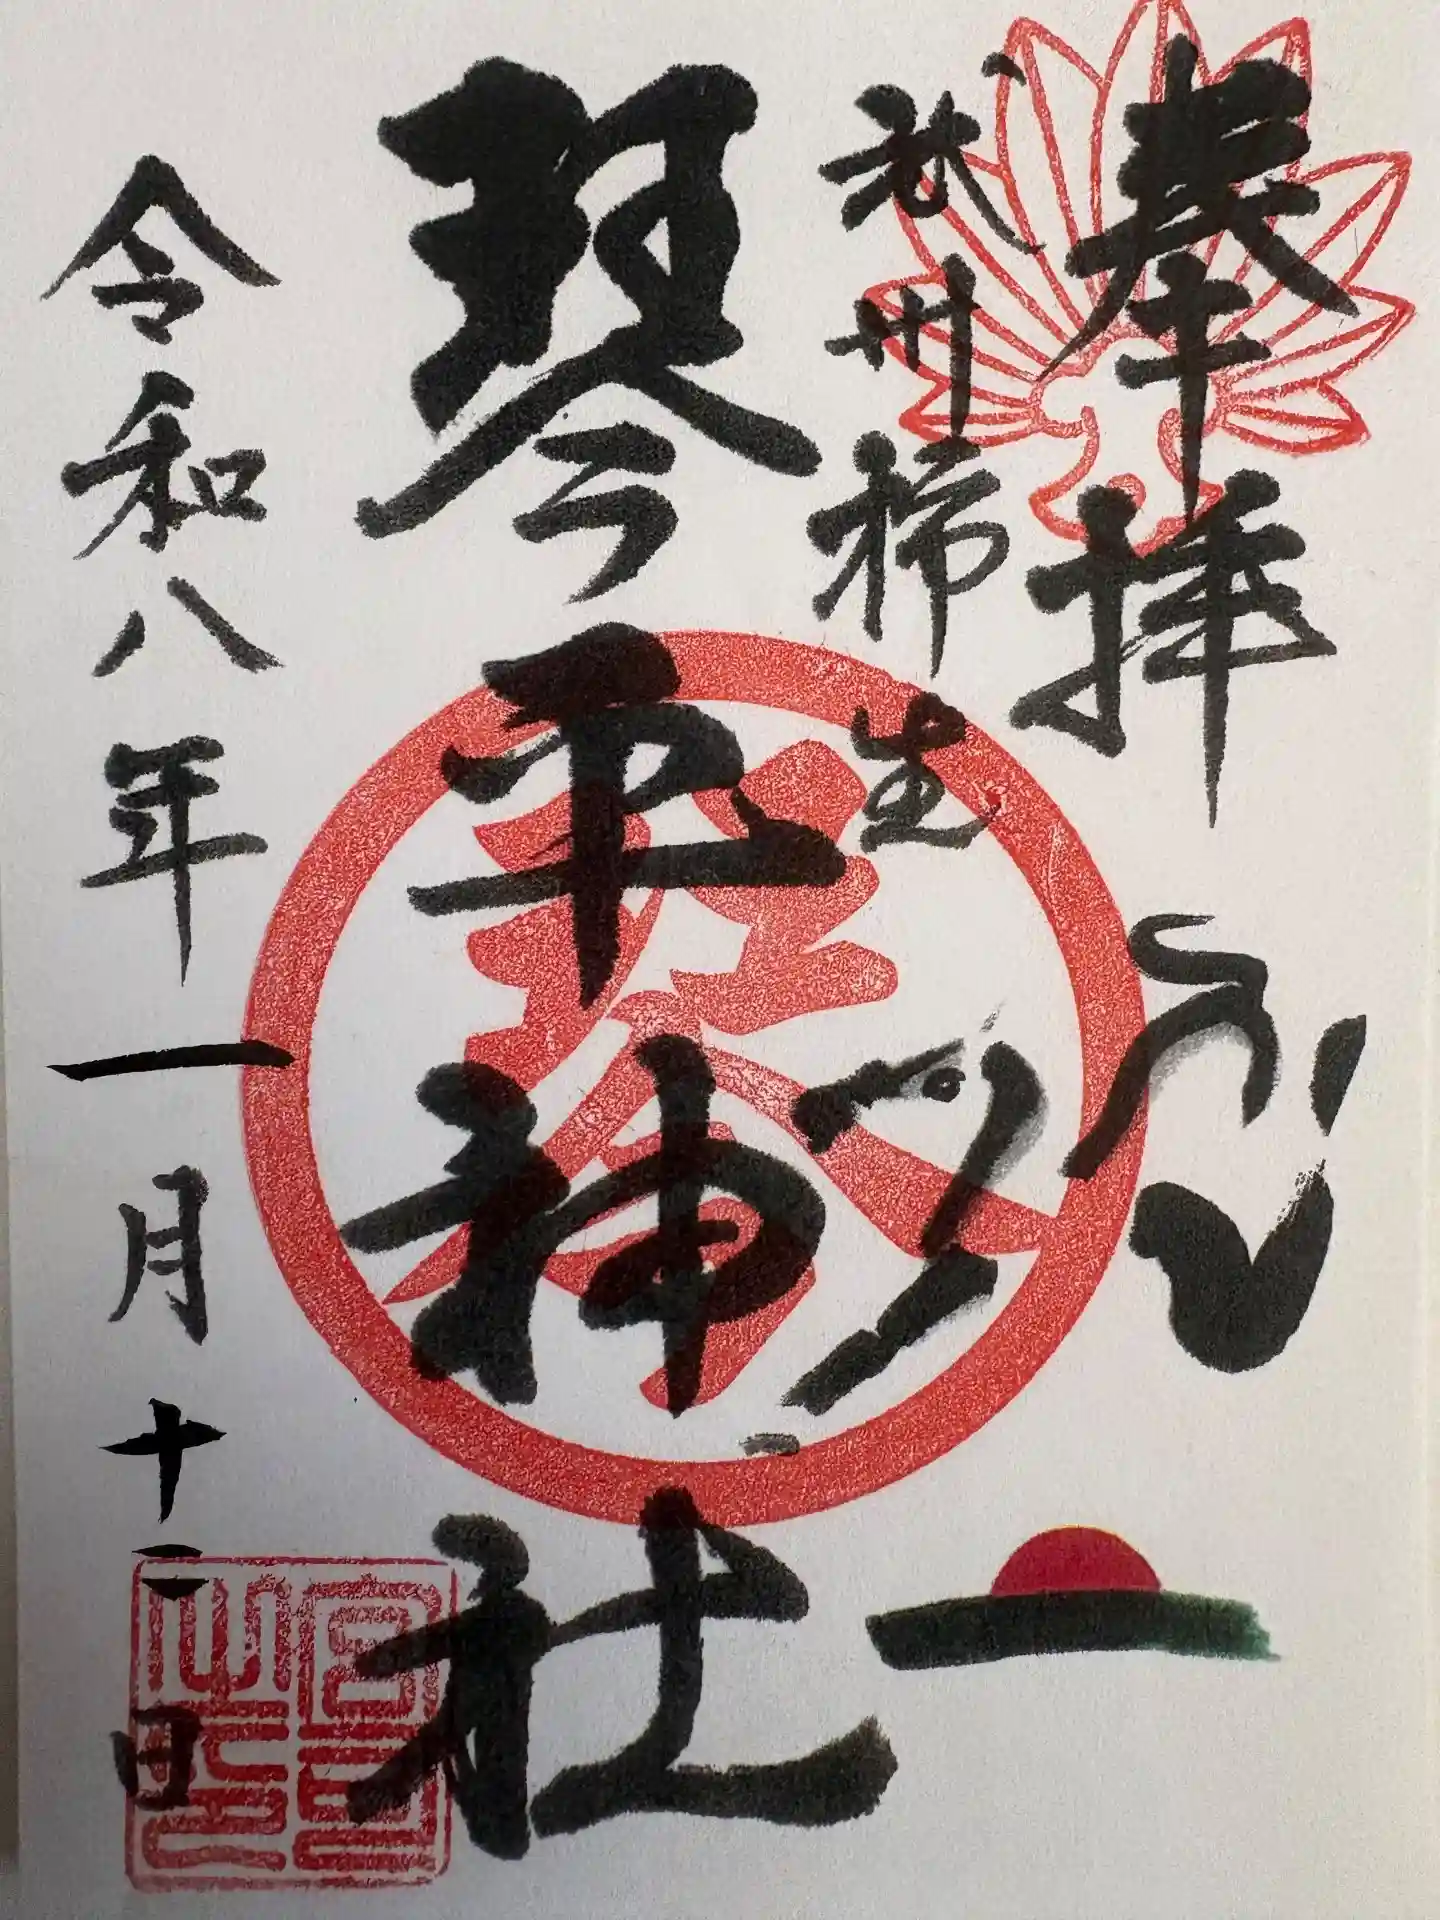 奉拝
武州柿生
琴平神社
令和八年一月十二日